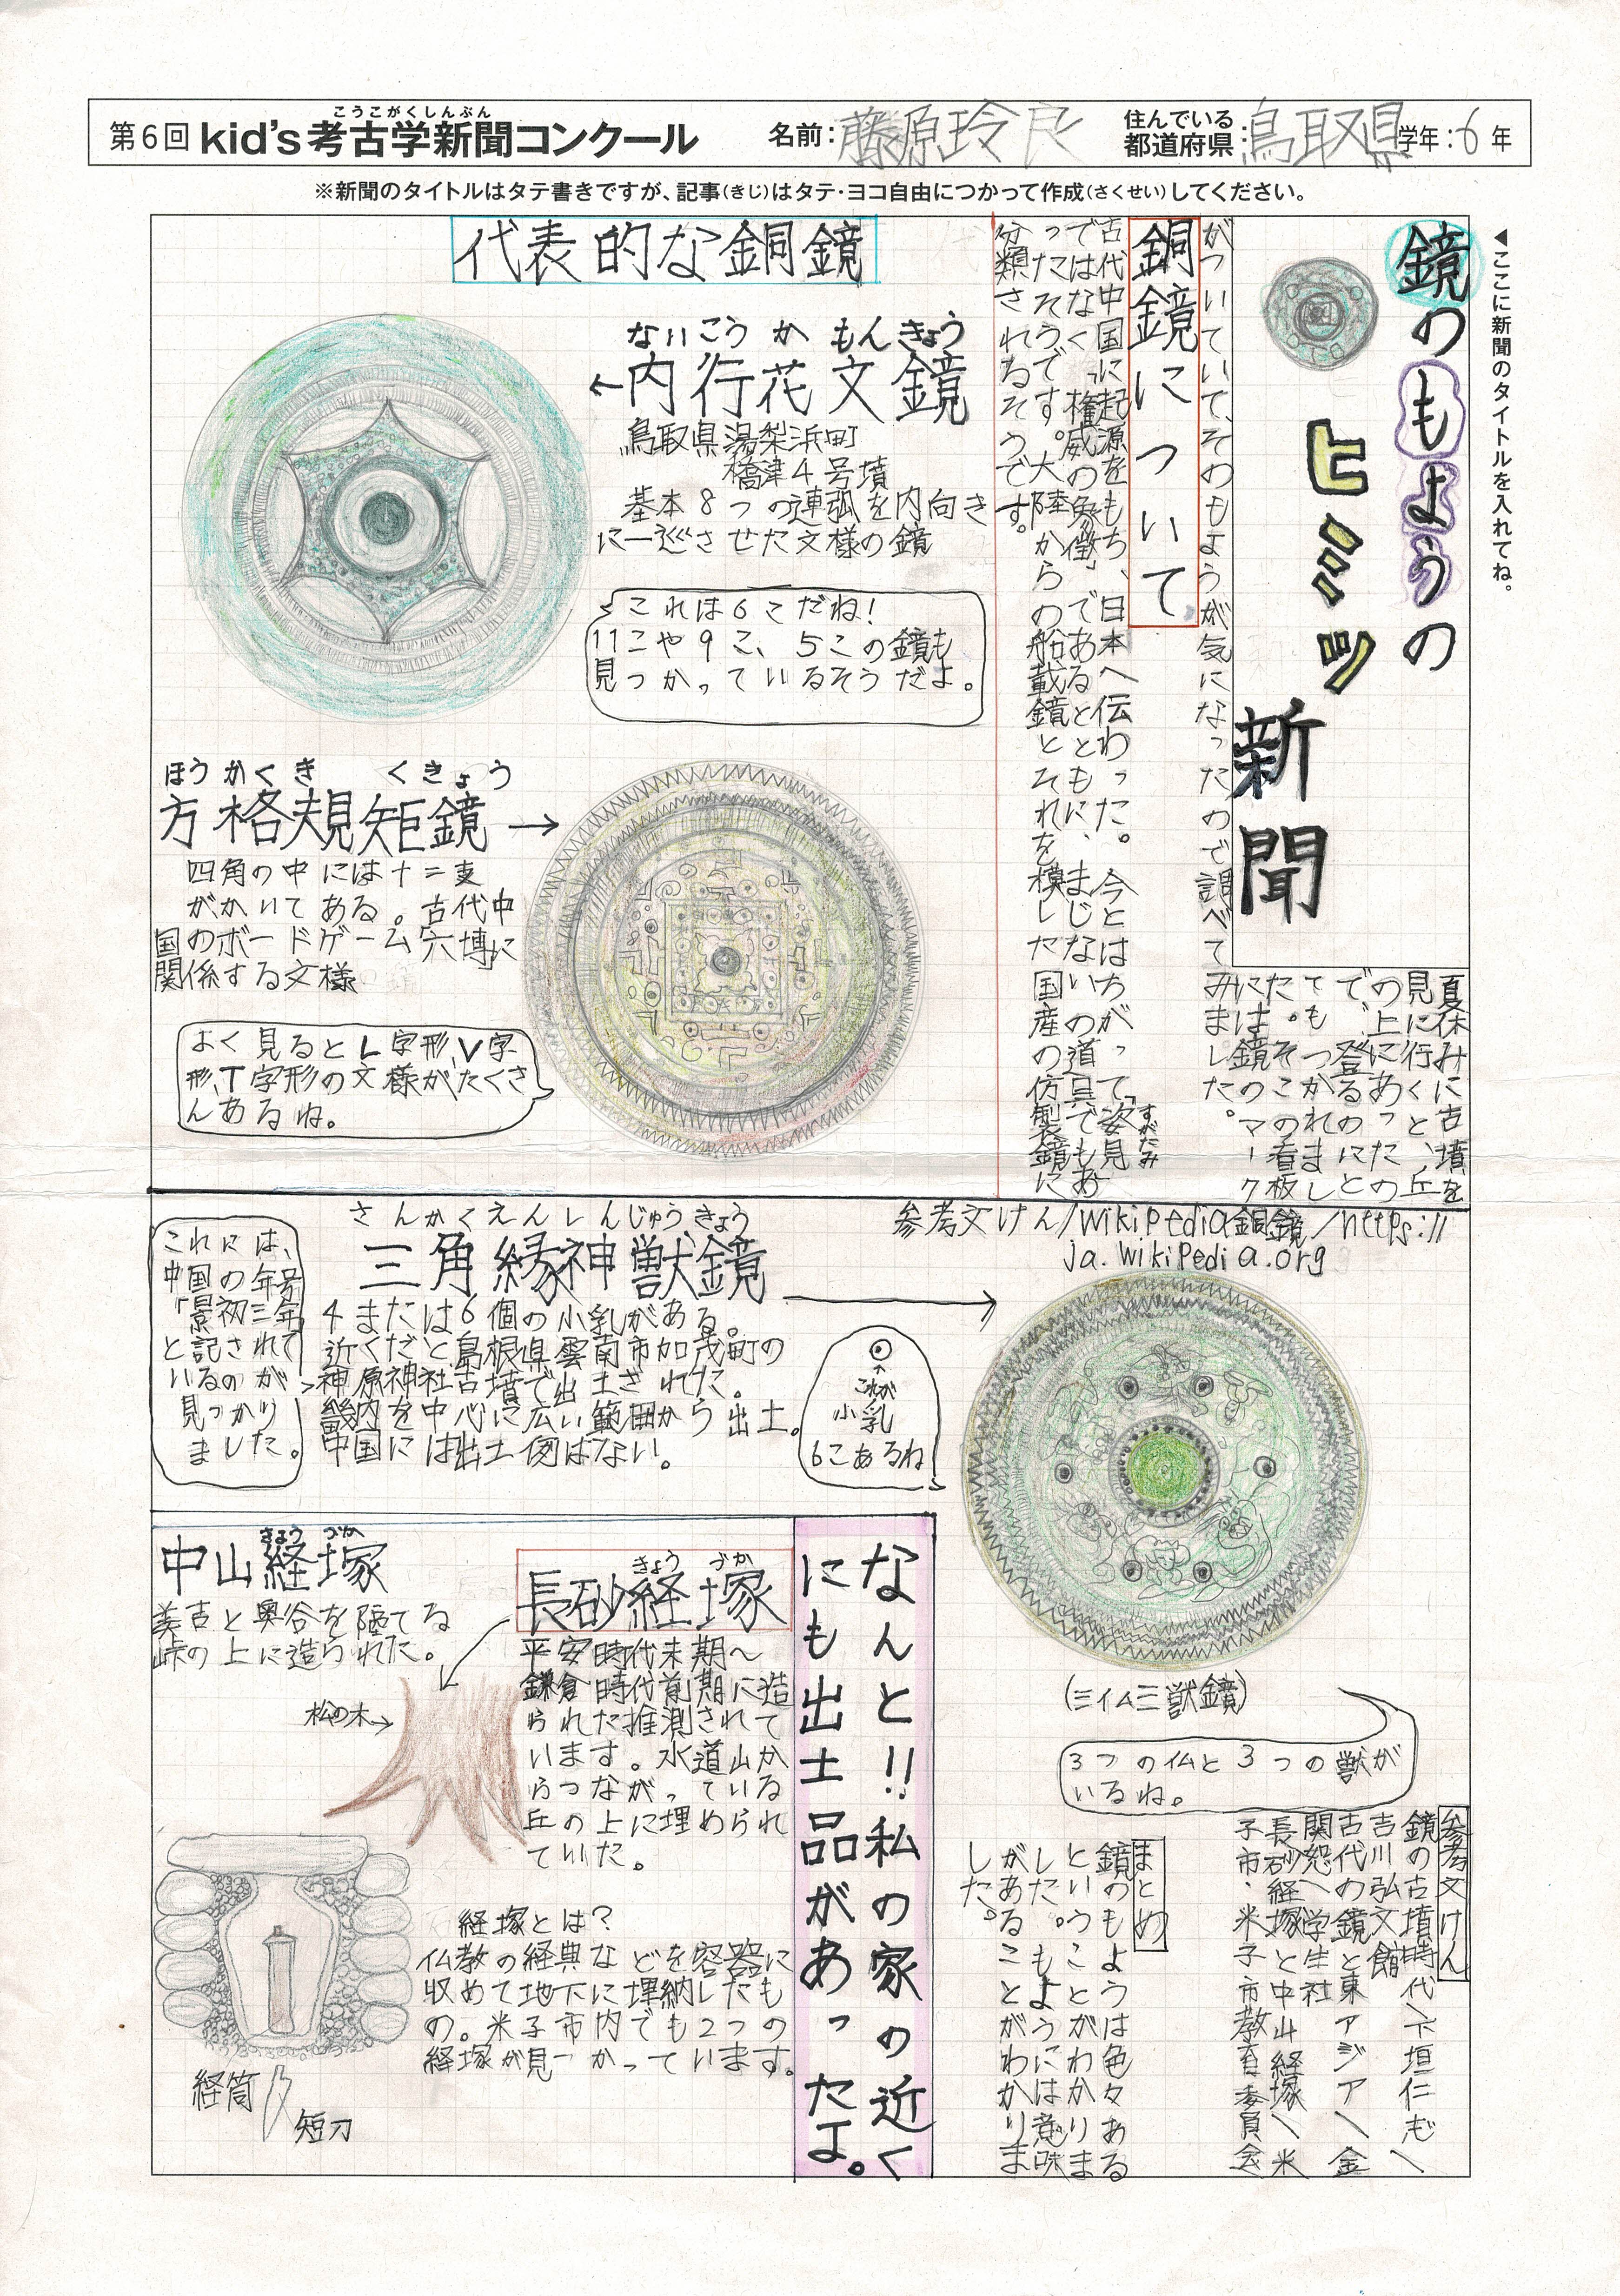 こうこがくしんぶん
第6回 kid's考古学新聞コンクール
名前:藤原玲良
住んでいる
都道府県:鳥取県
学年:6年
※新聞のタイトルはタテ書きですが、記事(きじ)はタテ・ヨコ自由につかって作成(さくせい)してください。
◀ここに新聞のタイトルを入れてね。
鏡のもようの
ヒミツ
新聞
夏休みに古墳を
見に行くと、丘
の上にあったの
で、登るのにと
ても つかれまし
た。そこの看板
には鏡のマーク
がついていて、そのもようが気になったので調べて
みました。
銅鏡について
古代中国に起源をもち、日本へ伝わった。今とはちがって「姿見
すがたみ
ではなく「権威の象徴」であるとともに、まじないの道具でもあ
ったそうです。大陸からの船載鏡とそれを模した国産の仿製鏡に
分類されるそうです。
代表的な銅鏡
ないこうかもんきょう
←内行花文鏡
鳥取県湯梨浜町
橋津4号墳
基本8つの連弧を内向き
に一巡させた文様の鏡
これは6こだね!
11こや9こ、5この鏡も
見つかっているそうだよ。
ほうかくきくきょう
方格規矩鏡→
四角の中には十二支
がかいてある。古代中
国のボードゲーム六博に
関係する文様
よく見るとL字形、V字
形、T字形の文様がたくさ
んあるね。
さんかくえんしんじゅうきょう
三角縁神獣鏡
4または6個の小乳がある。
近くだと、島根県雲南市加茂町の
神原神社古墳で出土された。
畿内を中心に広い範囲から出土。
中国には出土例はない。
これには、
中国の年号
「景初三年
と記されて
いるのが
見つかり
ました。
↑
これが
小乳
6こあるね
参考文けん/wikipedia銅鏡/https://
ja.wikipedia.org
(三仏三獣鏡)
3つの仏と3つの獣が
いるね。
なんと!!私の家の近く
にも出土品があったよ。
きょうづか
長砂経塚
平安時代末期～
鎌倉時代前期に造
られた推測されて
います。水道山か
らつながっている
丘の上に埋められ
ていた。
きょうづか
中山経塚
美吉と奥谷を隔てる
峠の上に造られた。
松の木→
経塚とは?
仏教の経典などを容器に
収めて地下に埋納したも
の。米子市内でも2つの
経塚が見つかっています。
経筒
短刀
参考文けん
鏡の古墳時代\下垣仁志\
吉川弘文館
古代の鏡と東アジア\金
関恕\学生社
長砂経塚と中山経塚\米
子市・米子市教育委員会
まとめ
鏡のもようは色々ある
ということがわかりま
した。もようには意味
があることがわかりま
した。